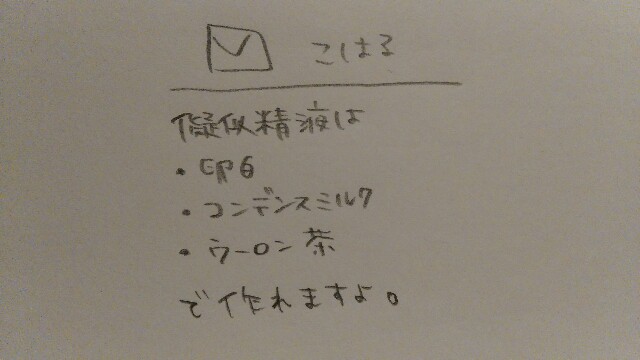 こはる
擬似精液は
・卵白
・コンデンスミルク
・ウーロン茶
で作れますよ。